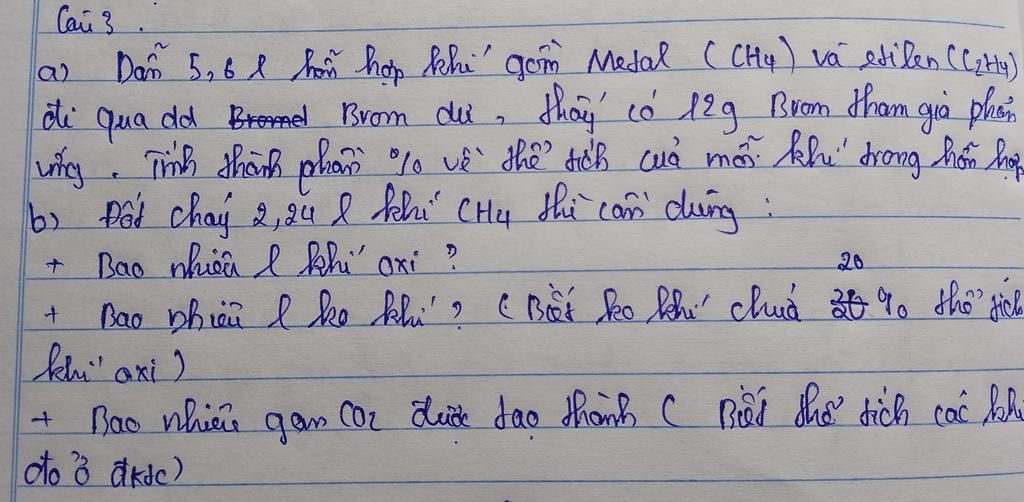 Câu 3.
a) Dẫn 5,6 l hỗn hợp khí gồm Metal (CH4) và etilen (C2H4)
đi qua dd Bromel Brom dư, thấy có 12g Brom tham gia phản
ứng. Tính thành phần % về thể tích của mỗi khí trong hỗn hợp
b) Đốt cháy 2,24 l khí CH4 thì cần dùng:
+ Bao nhiêu l khí oxi?
+ Bao nhiêu l ko khí? (Biết ko khí chứa 20 % thể tích
khí oxi)
+ Bao nhiêu gam CO2 được tạo thành ( Biết thể tích các khí
đo ở đktc)